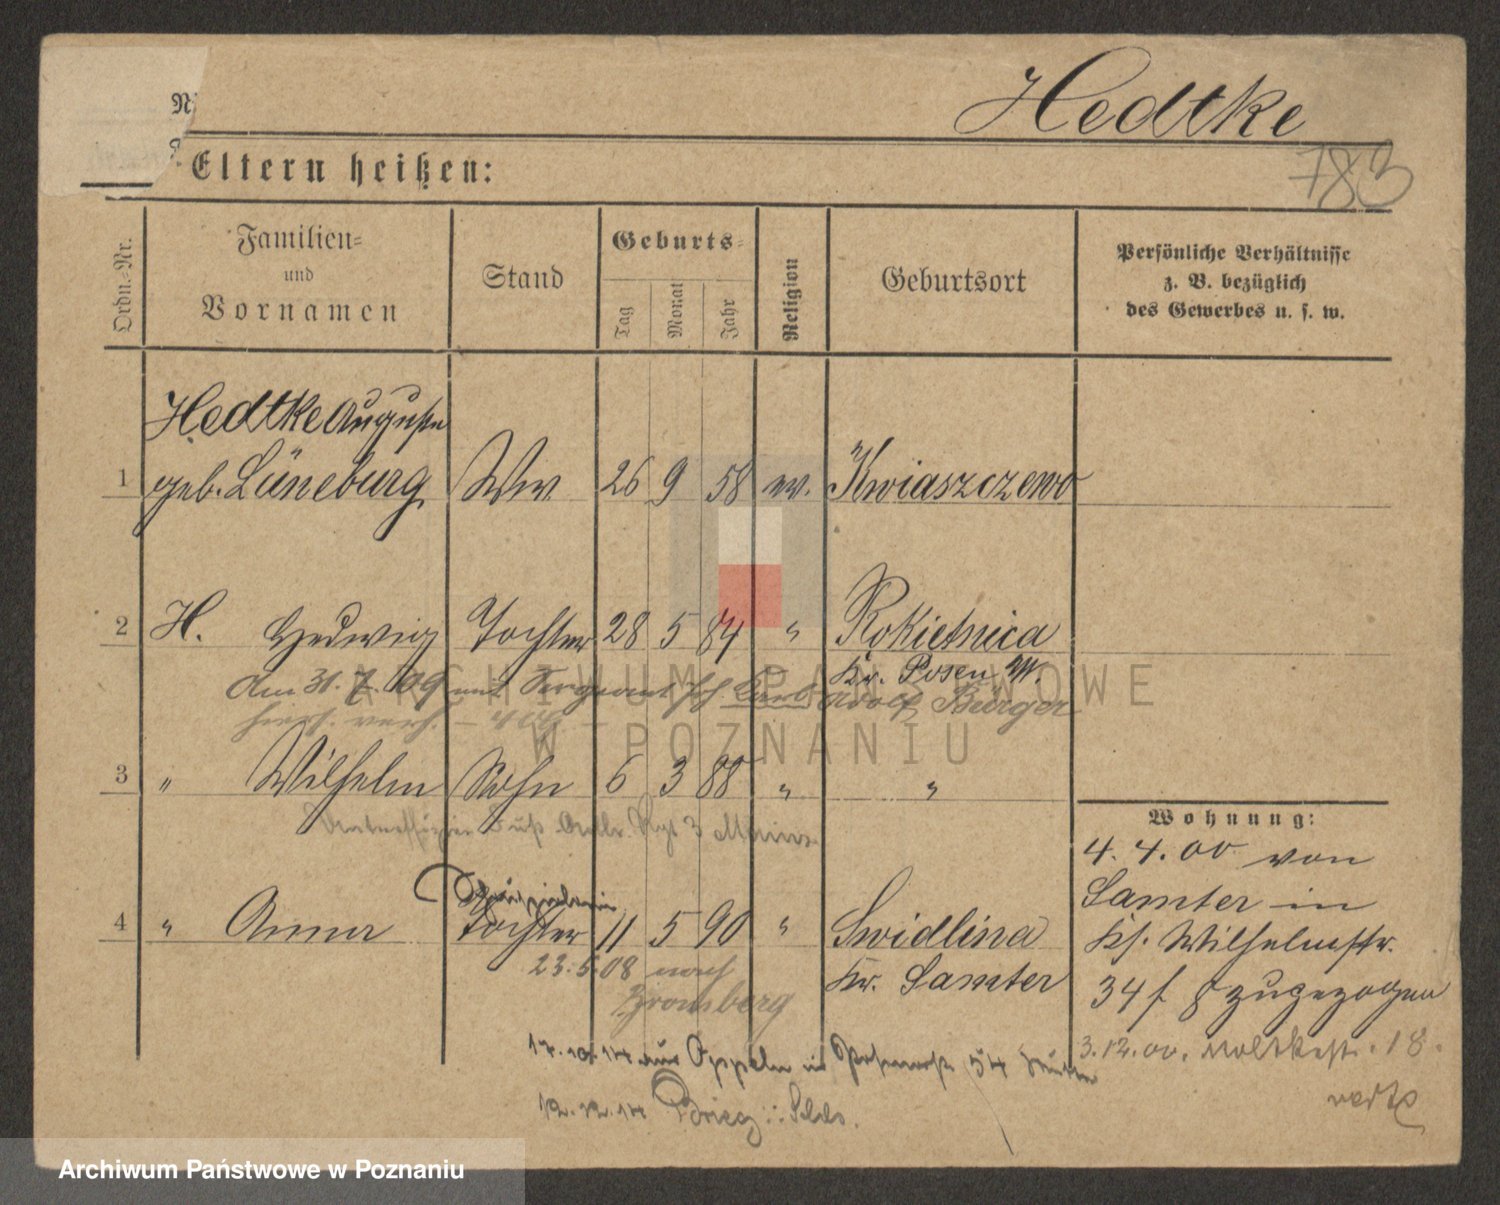 Hedtke
783
Eltern heißen:
Ordn.-Nr.
Familien-
und
Vornamen
Stand
Geburts-
Tag
Monat
Jahr
Religion
Geburtsort
Persönliche Verhältnisse
z. B. bezüglich
des Gewerbes u. s. w.
Hedtke Auguste
1 geb. Lüneburg Ww 26 9 58 ev. Kwiaszczewo
2 H. Hedwig Tochter 28 5 84 " Rokietnica
Kr. Posen W.
Am 31. 7. 09 mit Sergeant Karl Adolf Bürger
hier verh.
3 " Wilhelm Sohn 6 3 88 " "
Fuß Artl. Rgt 3 Mainz
4 " Anna Tochter 11 5 90 " Swidlina
Kr. Samter
23.5.08 nach
Bromberg
17.10.14 aus Oppeln in 54
12.12.14 Brieg
Wohnung:
4. 4. 00 von
Samter in
Ks. Wilhelmstr.
34 zugezogen
3.12.00. Moltkestr. 18.
ARCHIWUM PAŃSTWOWE
W POZNANIU
Archiwum Państwowe w Poznaniu